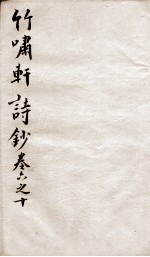 竹嘯軒詩鈔卷六之十